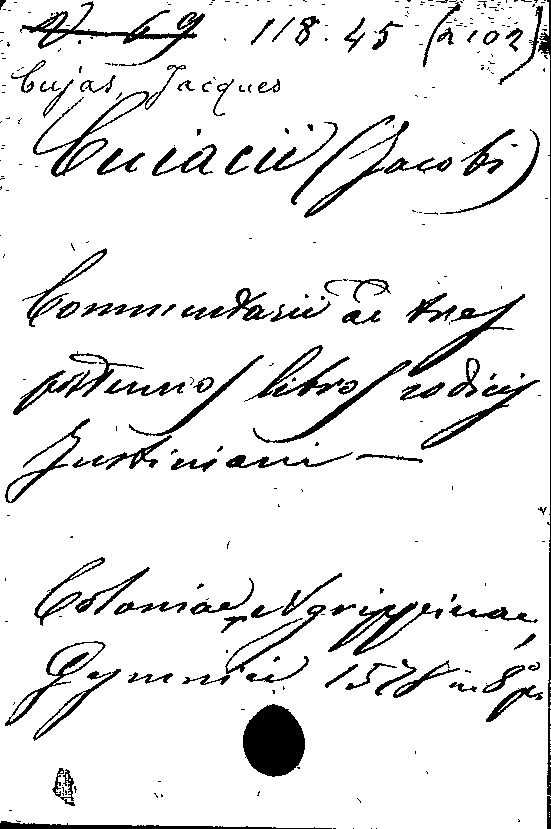 V. 69 118.45 (2102)
Cujas, Jacques
Cuiacii (Jacobi)
Commentarii ad tres
postremos libros codicis
Justiniani —
Coloniae Agrippinae,
Gymnici 1578 in 8º